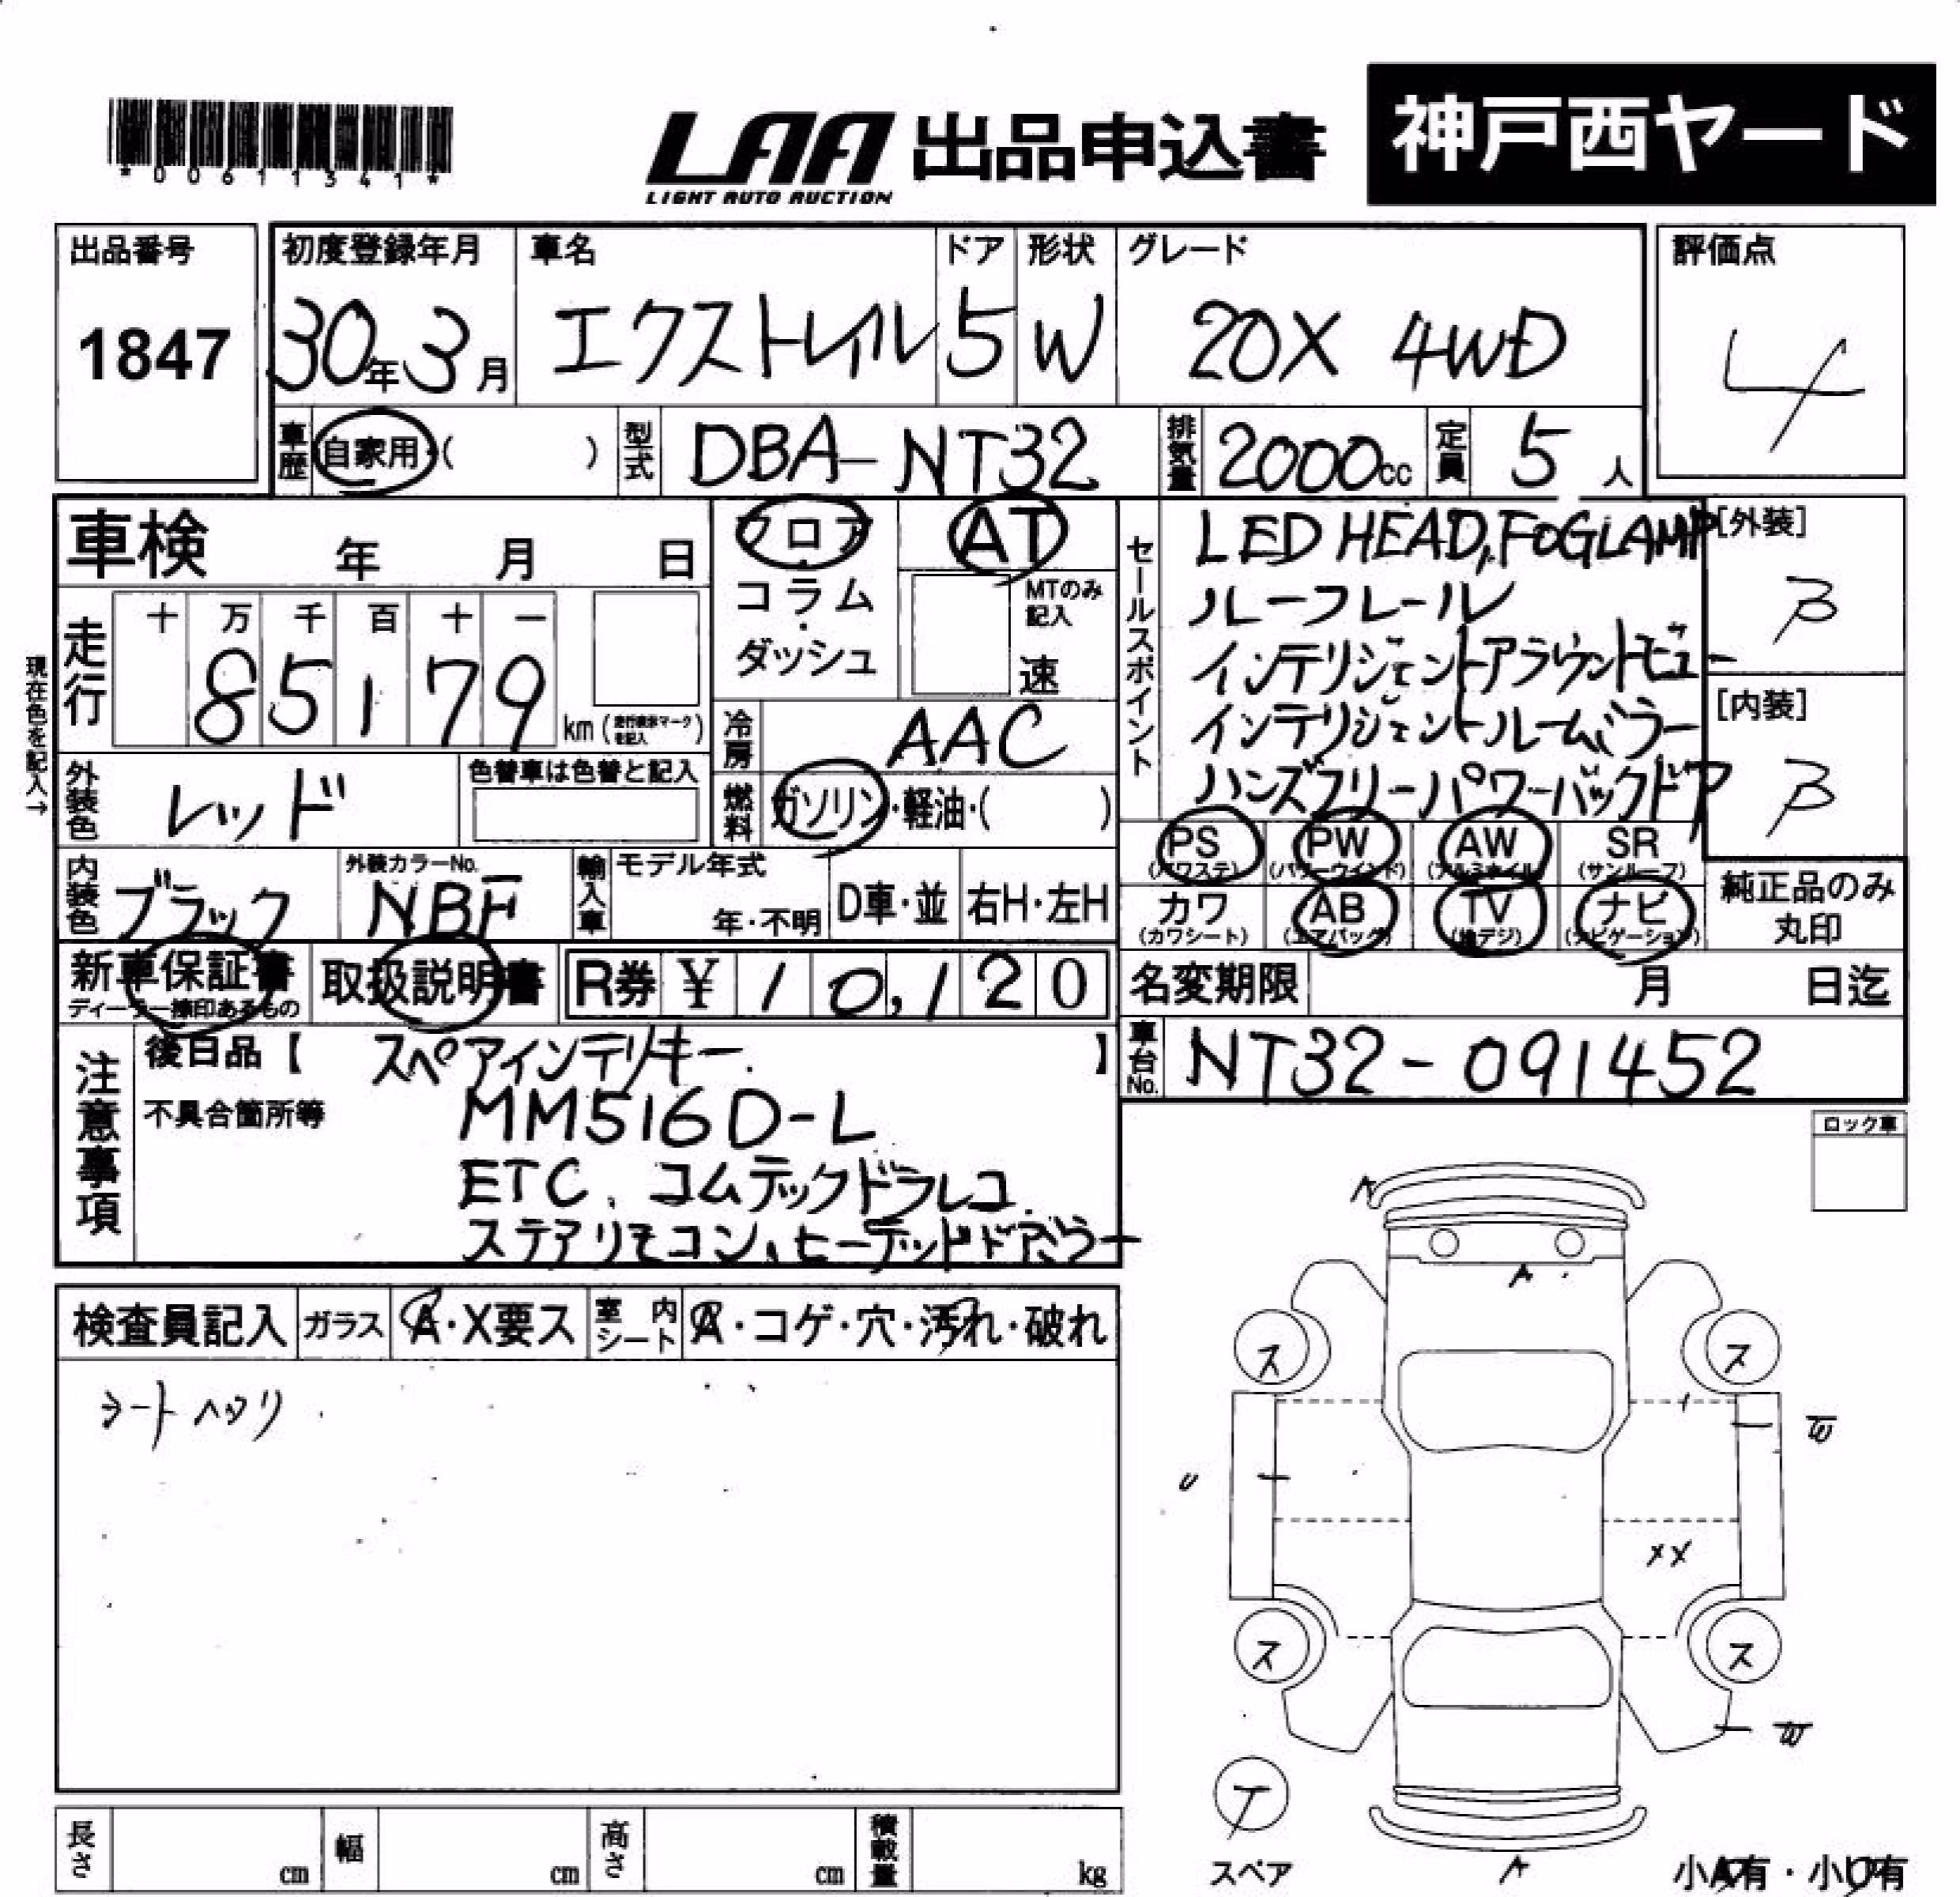 *00611341*
LAA 出品申込書
LIGHT AUTO AUCTION
神戸西ヤード
出品番号
1847
初度登録年月
30年3月
車名
エクストレイル
ドア
5
形状
W
グレード
20X 4WD
評価点
4
車歴
自家用・( )
型式
DBA-NT32
排気量
2000cc
定員
5人
車検 年 月 日
フロア
・
コラム
・
ダッシュ
AT
MTのみ
記入
速
セールスポイント
LED HEAD, FOGLAMP
ルーフレール
インテリジェントアラウンドビュー
インテリジェントルームミラー
ハンズフリーパワーバックドア
[外装]
B
[内装]
B
現在色を記入→
走行
十 万 千 百 十 一
8 5 1 7 9
km (走行表示マークを記入)
冷房
AAC
外装色
レッド
色替車は色替と記入
燃料
ガソリン・軽油・( )
PS (パワステ)
PW (パワーウインド)
AW (アルミホイル)
SR (サンルーフ)
カワ (カワシート)
AB (エアバッグ)
TV (地デジ)
ナビ (ナビゲーション)
純正品のみ
丸印
内装色
ブラック
外装カラーNo.
NBF
輸入車
モデル年式
年・不明
D車・並
右H・左H
新車保証書
ディーラー捺印あるもの
取扱説明書
R券 ¥ 10,120
名変期限 月 日迄
車台No.
NT32-091452
注意事項
後日品【 スペアインテリキー. 】
不具合箇所等
MM516D-L
ETC、コムテックドラレコ
ステアリモコン、ヒーテッドドアミラー
ロック車
検査員記入
ガラス
A・X要ス
室内シート
A・コゲ・穴・汚れ・破れ
シートヘタリ
A
A
ス
ス
W
U
XX
ス
ス
W
スペア
A
小A有・小U有
長さ cm
幅 cm
高さ cm
積載量 kg